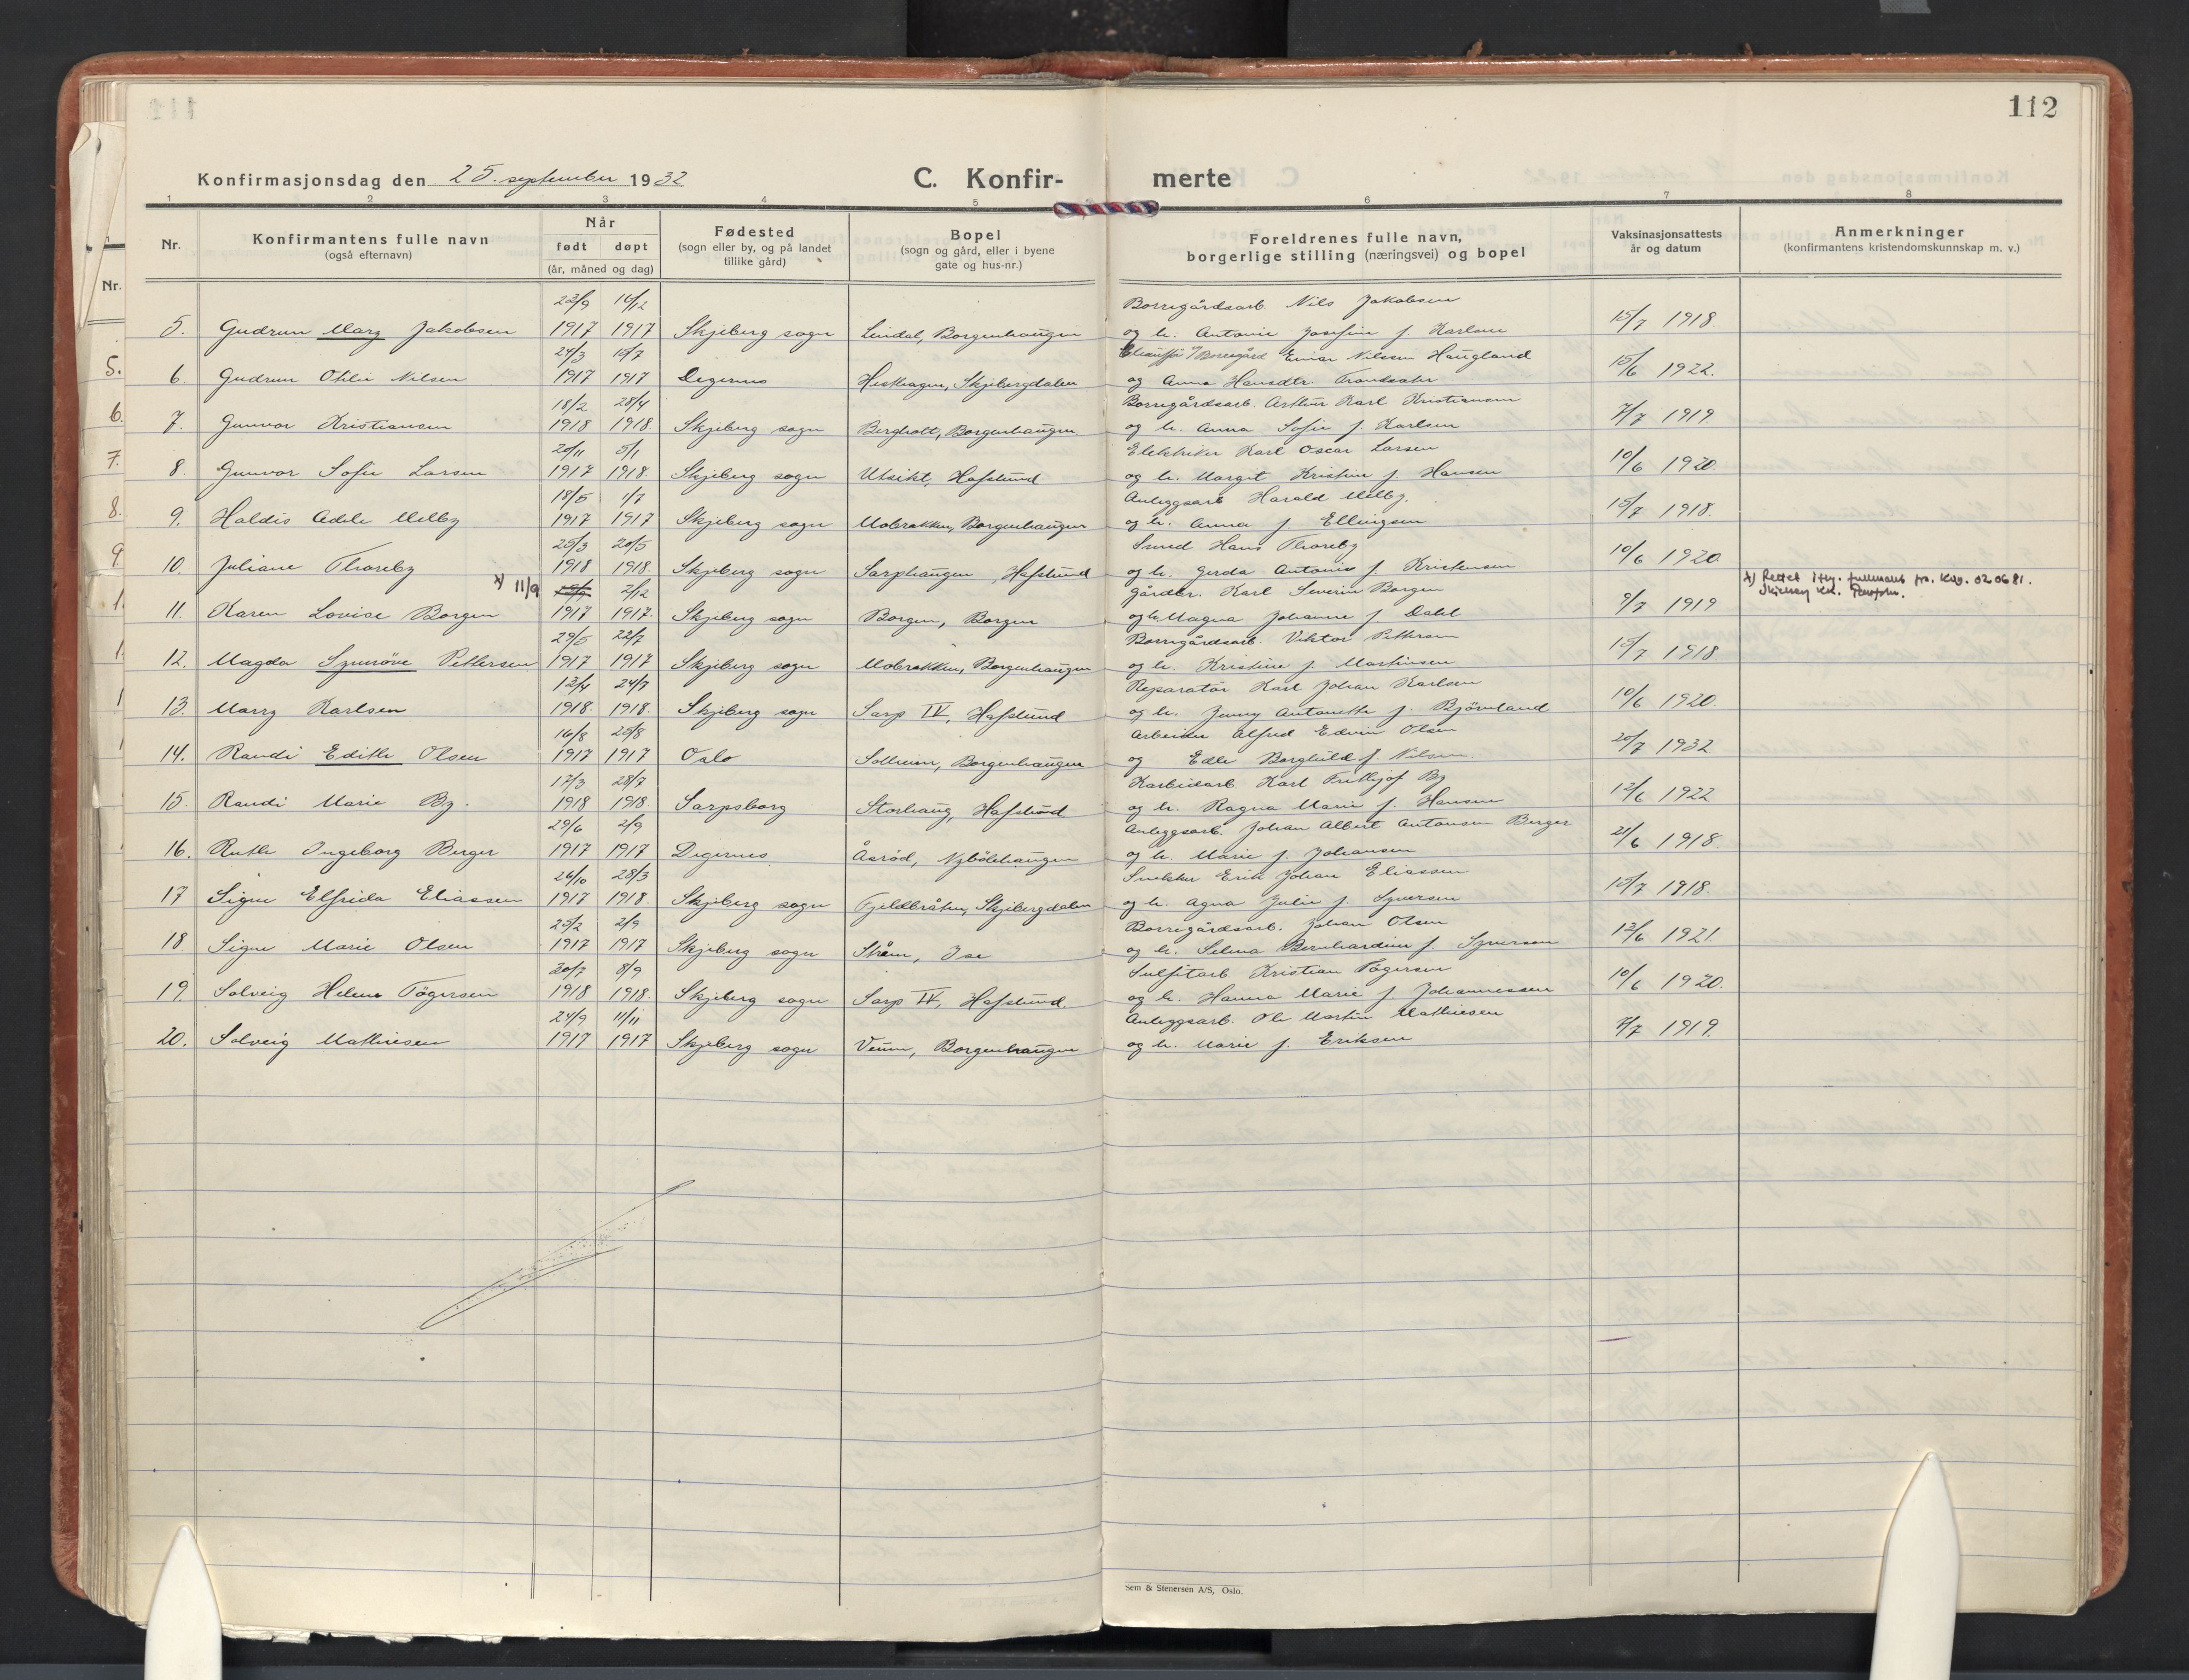 112
Konfirmasjonsdag den 25. september 1932
C. Konfir- merte
1 2 3 4 5 6 7 8
Nr.
Konfirmantens fulle navn
(også efternavn)
Når
født døpt
(år, måned og dag)
Fødested
(sogn eller by, og på landet
tillike gård)
Bopel
(sogn og gård, eller i byene
gate og hus-nr.)
Foreldrenes fulle navn,
borgerlige stilling (næringsvei) og bopel
Vaksinasjonsattests
år og datum
Anmerkninger
(konfirmantens kristendomskunnskap m. v.)
23/9 16/12 Borregårdsarb. Nils Jakobsen
5. Gudrun Mary Jakobsen 1917 1917 Skjeberg sogn Lindal, Borgenhaugen og h. Antonie Josefine f. Karlsen 15/7 1918
24/3 15/7 Chauffør v/ Borregård Einar Nilssen Haugland
6. Gudrun Otilie Nilsen 1917 1917 Degernes Hesthagen, Skjebergdalen og Anna Hansdtr. 15/6 1922.
18/2 28/4 Borregårdsarb. Arthur Karl Kristiansen
7. Gunvor Kristiansen 1918 1918. Skjeberg sogn Bergholt, Borgenhaugen og h. Anna Sofie f. Karlsen 7/7 1919.
20/11 5/1 Elektriker Karl Oscar Larsen
8. Gunvor Sofie Larsen 1917 1918. Skjeberg sogn Utsikt, Hafslund og h. Margit Kristine f. Hansen 10/6 1920.
18/5 1/7 Anleggsarb Harald Melby.
9. Haldis Adele Melby 1917 1917 Skjeberg sogn Mobrekken, Borgenhaugen og h. Anna f. Ellingsen 15/7 1918.
25/3 20/5 Smed Hans Thoreby
10. Juliane Thoreby 1918 1918. Skjeberg sogn Sarphaugen, Hafslund og h. Gerda Antonie f. Kristensen 10/6 1920.
x) 11/9 2/12 gårdbr. Karl Severin Borgen
11. Karen Lovise Borgen 1917 1917. Skjeberg sogn Borgen, Borgen og h. Magna Johanne f. Dahl 9/7 1919
x) Rettet iflg. fullmakt fra Kdg. 020681.
29/5 22/7 Borregårdsarb. Viktor Pettersen
12. Magda Synnøve Pettersen 1917 1917 Skjeberg sogn Mobrekken, Borgenhaugen og h. Kristine f. Martinsen 15/7 1918.
13/4 24/7 Reparatør Karl Johan Karlsen
13. Marry Karlsen 1918. 1918. Skjeberg sogn Sarp IV, Hafslund og h. Jenny Antonette f. Bjørnland 10/6 1920.
16/8 25/8 Arbeider Alfred Edvin Olsen
14. Randi Edith Olsen 1917 1917 Oslo Solheim, Borgenhaugen og Edle Borghild f. Nilsen. 20/7 1932
17/3 28/7 Karbidarb. Karl Frithjof By
15. Randi Marie By. 1918 1918. Sarpsborg Storhaug, Hafslund og h. Ragna Marie f. Hansen 12/6 1922
29/6 2/9 Anleggsarb. Johan Albert Antonsen Berger
16. Ruth Ingeborg Berger 1917 1917 Degernes Åsrød, Nybølehaugen og h. Marie f. Johansen 21/6 1918.
26/10 28/3 Snekker Erik Johan Eliassen
17 Signe Elfrida Eliassen 1917 1918. Skjeberg sogn Fjeldbråten, Skjebergdalen og h. Agna Julie f. Syversen 15/7 1918.
25/2 2/9 Borregårdsarb. Johan Olsen
18. Signe Marie Olsen 1917 1917 Skjeberg sogn Strøm, Ise og h. Selma Bernhardine f. Syversen 13/6 1921.
20/7 8/9 Sulfitarb. Kristian Tøgersen
19. Solveig Helene Tøgersen 1918 1918. Skjeberg sogn Sarp IV, Hafslund. og h. Hanna Marie f. Johannessen 10/6 1920.
24/9 11/11 Anleggsarb. Ole Martin Mathiesen
20. Solveig Mathiesen 1917 1917 Skjeberg sogn Veum, Borgenhaugen og h. Marie f. Eriksen 7/7 1919.
Sem & Stenersen A/S, Oslo.